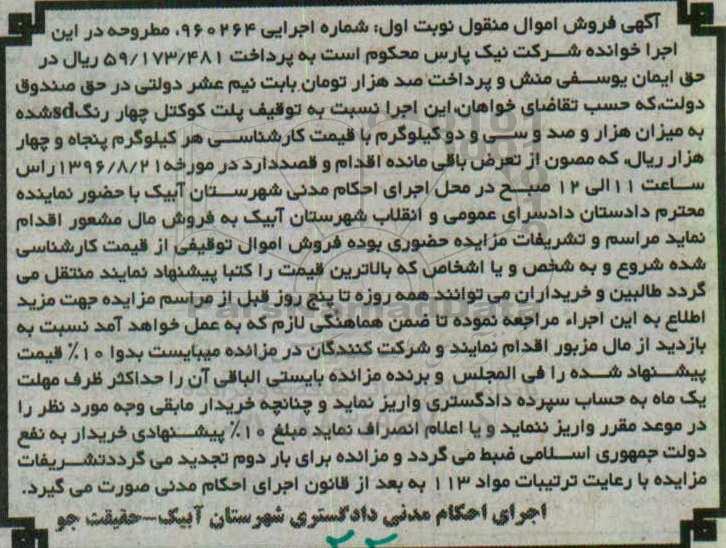 آگهی فروش اموال منقول نوبت اول: شماره اجرایی ۹۶۰۲۶۴، مطروحه در این
اجرا خوانده شرکت نیک پارس محکوم است به پرداخت ۵۹/۱۷۳/۴۸۱ ریال در
حق ایمان یوسفی منش و پرداخت صد هزار تومان بابت نیم عشر دولتی در حق صندوق
دولت،که حسب تقاضای خواهان،این اجرا نسبت به توقیف پلت کوکتل چهار رنگsdشده
به میزان هزار و صد و سی و دو کیلوگرم با قیمت کارشناسی هر کیلوگرم پنجاه و چهار
هزار ریال، که مصون از تعرض باقی مانده اقدام و قصددارد در مورخه۱۳۹۶/۸/۲۱راس
ساعت ۱۱الی ۱۲ صبح در محل اجرای احکام مدنی شهرستان آبیک با حضور نماینده
محترم دادستان دادسرای عمومی و انقلاب شهرستان آبیک به فروش مال مشعور اقدام
نماید مراسم و تشریفات مزایده حضوری بوده فروش اموال توقیفی از قیمت کارشناسی
شده شروع و به شخص و یا اشخاص که بالاترین قیمت را کتبا پیشنهاد نمایند منتقل می
گردد طالبین و خریداران می توانند همه روزه تا پنج روز قبل از مراسم مزایده جهت مزید
اطلاع به این اجراء مراجعه نموده تا ضمن هماهنگی لازم که به عمل خواهد آمد نسبت به
بازدید از مال مزبور اقدام نمایند و شرکت کنندگان در مزانده میبایست بدوا ۱۰٪ قیمت
پیشنهاد شده را فی المجلس و برنده مزانده بایستی الباقی آن را حداکثر ظرف مهلت
یک ماه به حساب سپرده دادگستری واریز نماید و چنانچه خریدار مابقی وجه مورد نظر را
در موعد مقرر واریز ننماید و یا اعلام انصراف نماید مبلغ ۱۰٪ پیشنهادی خریدار به نفع
دولت جمهوری اسلامی ضبط می گردد و مزانده برای بار دوم تجدید می گرددتشریفات
مزایده با رعایت ترتیبات مواد ۱۱۳ به بعد از قانون اجرای احکام مدنی صورت می گیرد.
اجرای احکام مدنی دادگستری شهرستان آبیک-حقیقت جو
۲۲